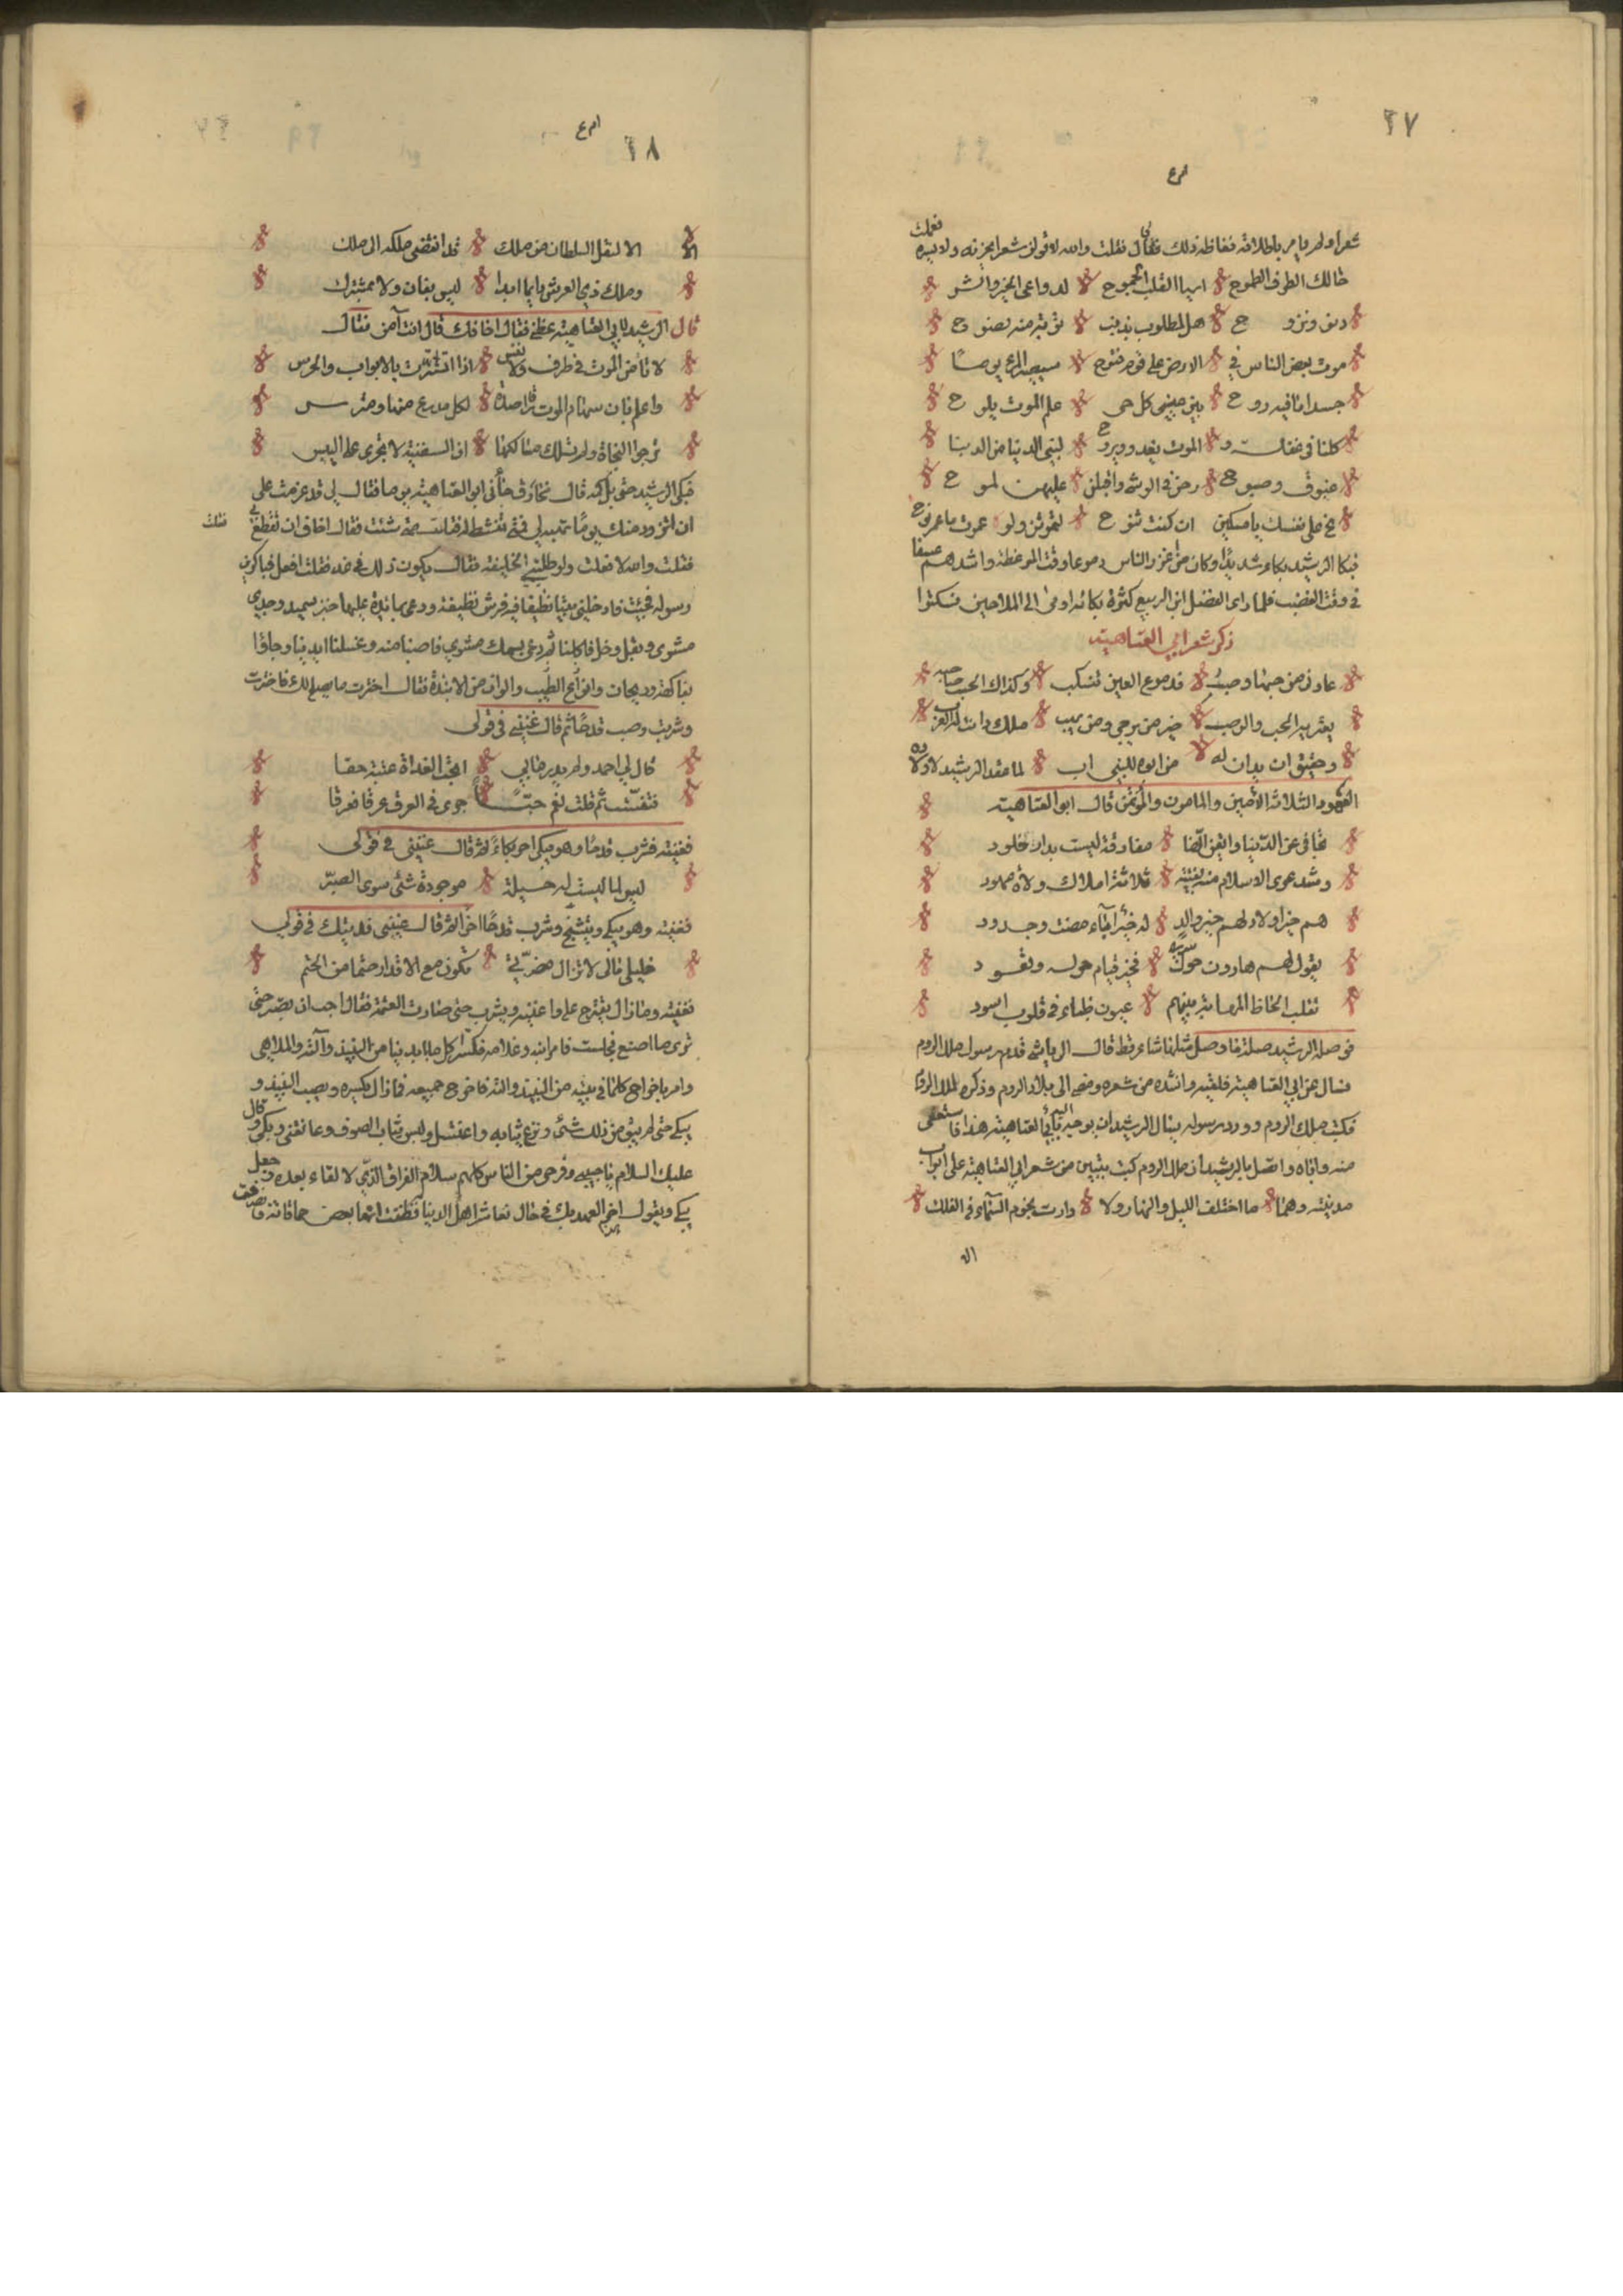 ٢٧
شعرا ولم يامر باطلاقه فغاظه ذلك فقال فقلت والله لاقولن شعرا يحزنه ولا يسره فعملت
خانك الطرف الطموح ايها القلب الجموح لدواعى الخير والشر
دنو ونزوح هل لمطلوب بذنب توبة منه نصوح
موت بعض الناس في الارض على قوم فتوح سيصير المرء يوما
جسدا ما فيه روح بين عينى كل حى علم الموت يلوح
كلنا فى غفلة و الموت يغدو ويروح لبنى الدنيا من الدنيا
غبوق وصبوح رحن فى الوشى واقبلن عليهن المسوح
نح على نفسك يا مسكين ان كنت تنوح لتموتن ولو عمرت ما عمر نوح
فبكا الرشيد بكاء شديدا وكان من اغزر الناس دموعا وقت الموعظة واشدهم عسفا
فى وقت الغضب فلما راى الفضل ابن الربيع كثرة بكائه اومى الى الملاحين فسكتوا
ذكر شعر ابي العتاهية
عاذلى من حبها وصب قدموع العين تنسكب وكذاك الحب صاحبه
يعتريه الحب والوصب خير من يرجى ومن يهب ملك دانت له العرب
وحقيق ان يدان له من ابوه للنبى اب لما عقد الرشيد لاولاده
العهود الثلاثة الامين والمامون والموتمن قال ابو العتاهية
تجافى عن الدنيا وايقن انها مفارقة ليست بدار خلود
وشد عرى الاسلام منه بفتية ثلاثة املاك ولاة عهود
هم خير اولاد لهم خير والد له خير آباء مضت وجدود
يقول لهم هارون حول سريره فخير قيام حوله وقعود
تقلب الحاظ المهابة بينهم عيون ظباء فى قلوب اسود
فوصله الرشيد صلة ما وصل مثلها شاعر قط قال الرياشى قدم رسول ملك الروم
فسال عن ابى العتاهية فلقيه وانشده من شعره ومضى الى بلاد الروم وذكره لملك الروم
فكتب ملك الروم وورد رسوله يسال الرشيد ان يوجه اليه بابى العتاهية هذا فاستعفى
منه واباه واتصل بالرشيد ان ملك الروم كتب بيتين من شعر ابى العتاهية على ابواب
مدينته وهما ما اختلف الليل والنهار ولا دارت نجوم السماء فى الفلك
الا
٢٨
الا لنقل السلطان من ملك قد انقضى ملكه الى ملك
وملك ذي العرش دايما ابدا ليس بفان ولا مشترك
قال الرشيد لابى العتاهية عظنى فقال اخافك قال انت آمن فقال
لا تأمن الموت فى طرف ولا نفس اذا تسترت بالابواب والحرس
واعلم بان سهام الموت قاصدة لكل مدرع منها ومترس
ترجو النجاة ولم تسلك مسالكها ان السفينة لا تجرى على اليبس
فبكى الرشيد حتى بل كمه قال مخارق جأنى ابو العتاهية يوما فقال لى قد عزمت على
ان اتزود منك يوما تهبه لى فمتى تنشط له فقلت متى شئت فقال اخاف ان تقطع بى فقلت
فقلت والله لا فعلت ولو طلبنى الخليفة فقال يكون ذلك فى غد فقلت افعل فباكرنى
رسوله فجيت فادخلنى بيتا نظيفا فيه فرش نظيفة ودعى بمائدة عليها خبز سميد وجدى
مشوى وبقل وخل فاكلنا ثم دعى بسمك مشوي فاصبنا منه وغسلنا ايدينا وجاؤا
بفاكهة وريحان وانواع الطيب والوان من الانبذة فقال اخترت ما يصلح لك فاخترت
وشربت وصب قدحا ثم قال غننى فى قولى
قال لي احمد ولم يدر ما بي اتحب الغداة عتبة حقا
فتنفست ثم قلت نعم حبا جرى فى العرق عرقا فعرقا
فغنيته فشرب قدحا وهو يبكى احر بكاء ثم قال غنينى فى قولى
ليس لما ليست له حيلة موجودة شئ سوى الصبر
فغنيته وهو يبكى وينتشج وشرب قدحا اخرا ثم قال غنينى فديتك فى قولى
خليلى مالى لا تزال مضرتى تكون مع الاقدار حتما من الحتم
فغنيته وما زال يقترح على واغنيه ويشرب حتى صارت العتمة فقال احب ان تصبر حتى
ترى ما اصنع فجلست فامر ابنه وغلامه فكسرا كل ما بايدينا من النبيذ وآلته والملاهى
وامر باخراج كلما فى بيته من النبيذ والته فاخرج جميعه فما زال يكسره ويصب النبيذ و
يبكى حتى لم يبق من ذلك شئ ونزع ثيابه واغتسل ولبس ثياب الصوف وعانقنى وبكى وقال
عليك السلام يا حبيبى وفرحى من الناس كلهم سلام الفراق الذى لا لقاء بعده وجعل
يبكى ويقول اخر العهد بك فى حال تعاشر اهل الدنيا فظننت انها بعض حماقاته فانصرفت